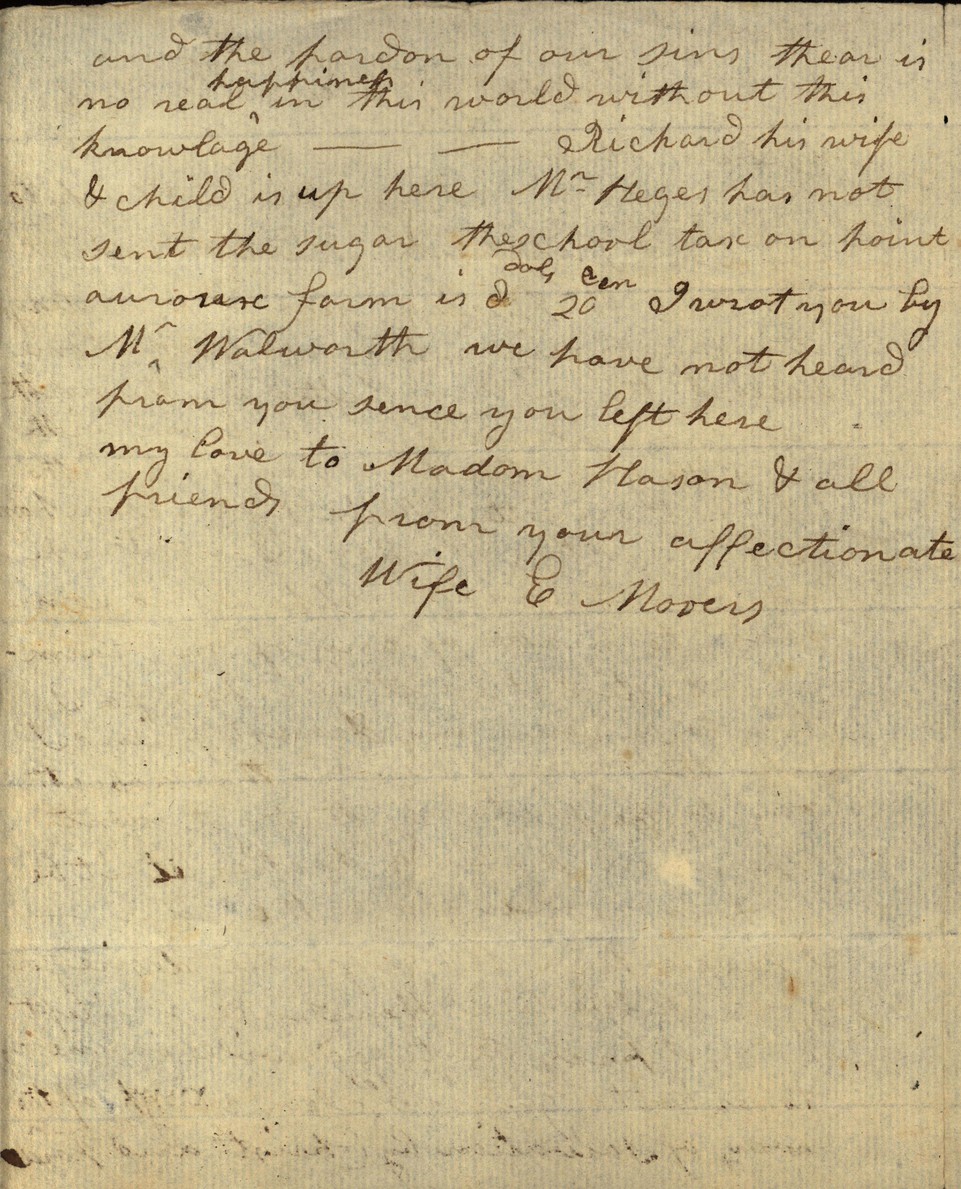 and the pardon of our sins thear is
no real happiness in this world without this
knowlage — — Richard his wife
& child is up here Mr Heges has not
sent the sugar the school tax on point
aurorux farm is 2 dols 20 cen I wrot you by
Mr Walworth we have not heard
from you sence you left here
my love to Madom Mason & all
friends from your affectionate
Wife E Movers